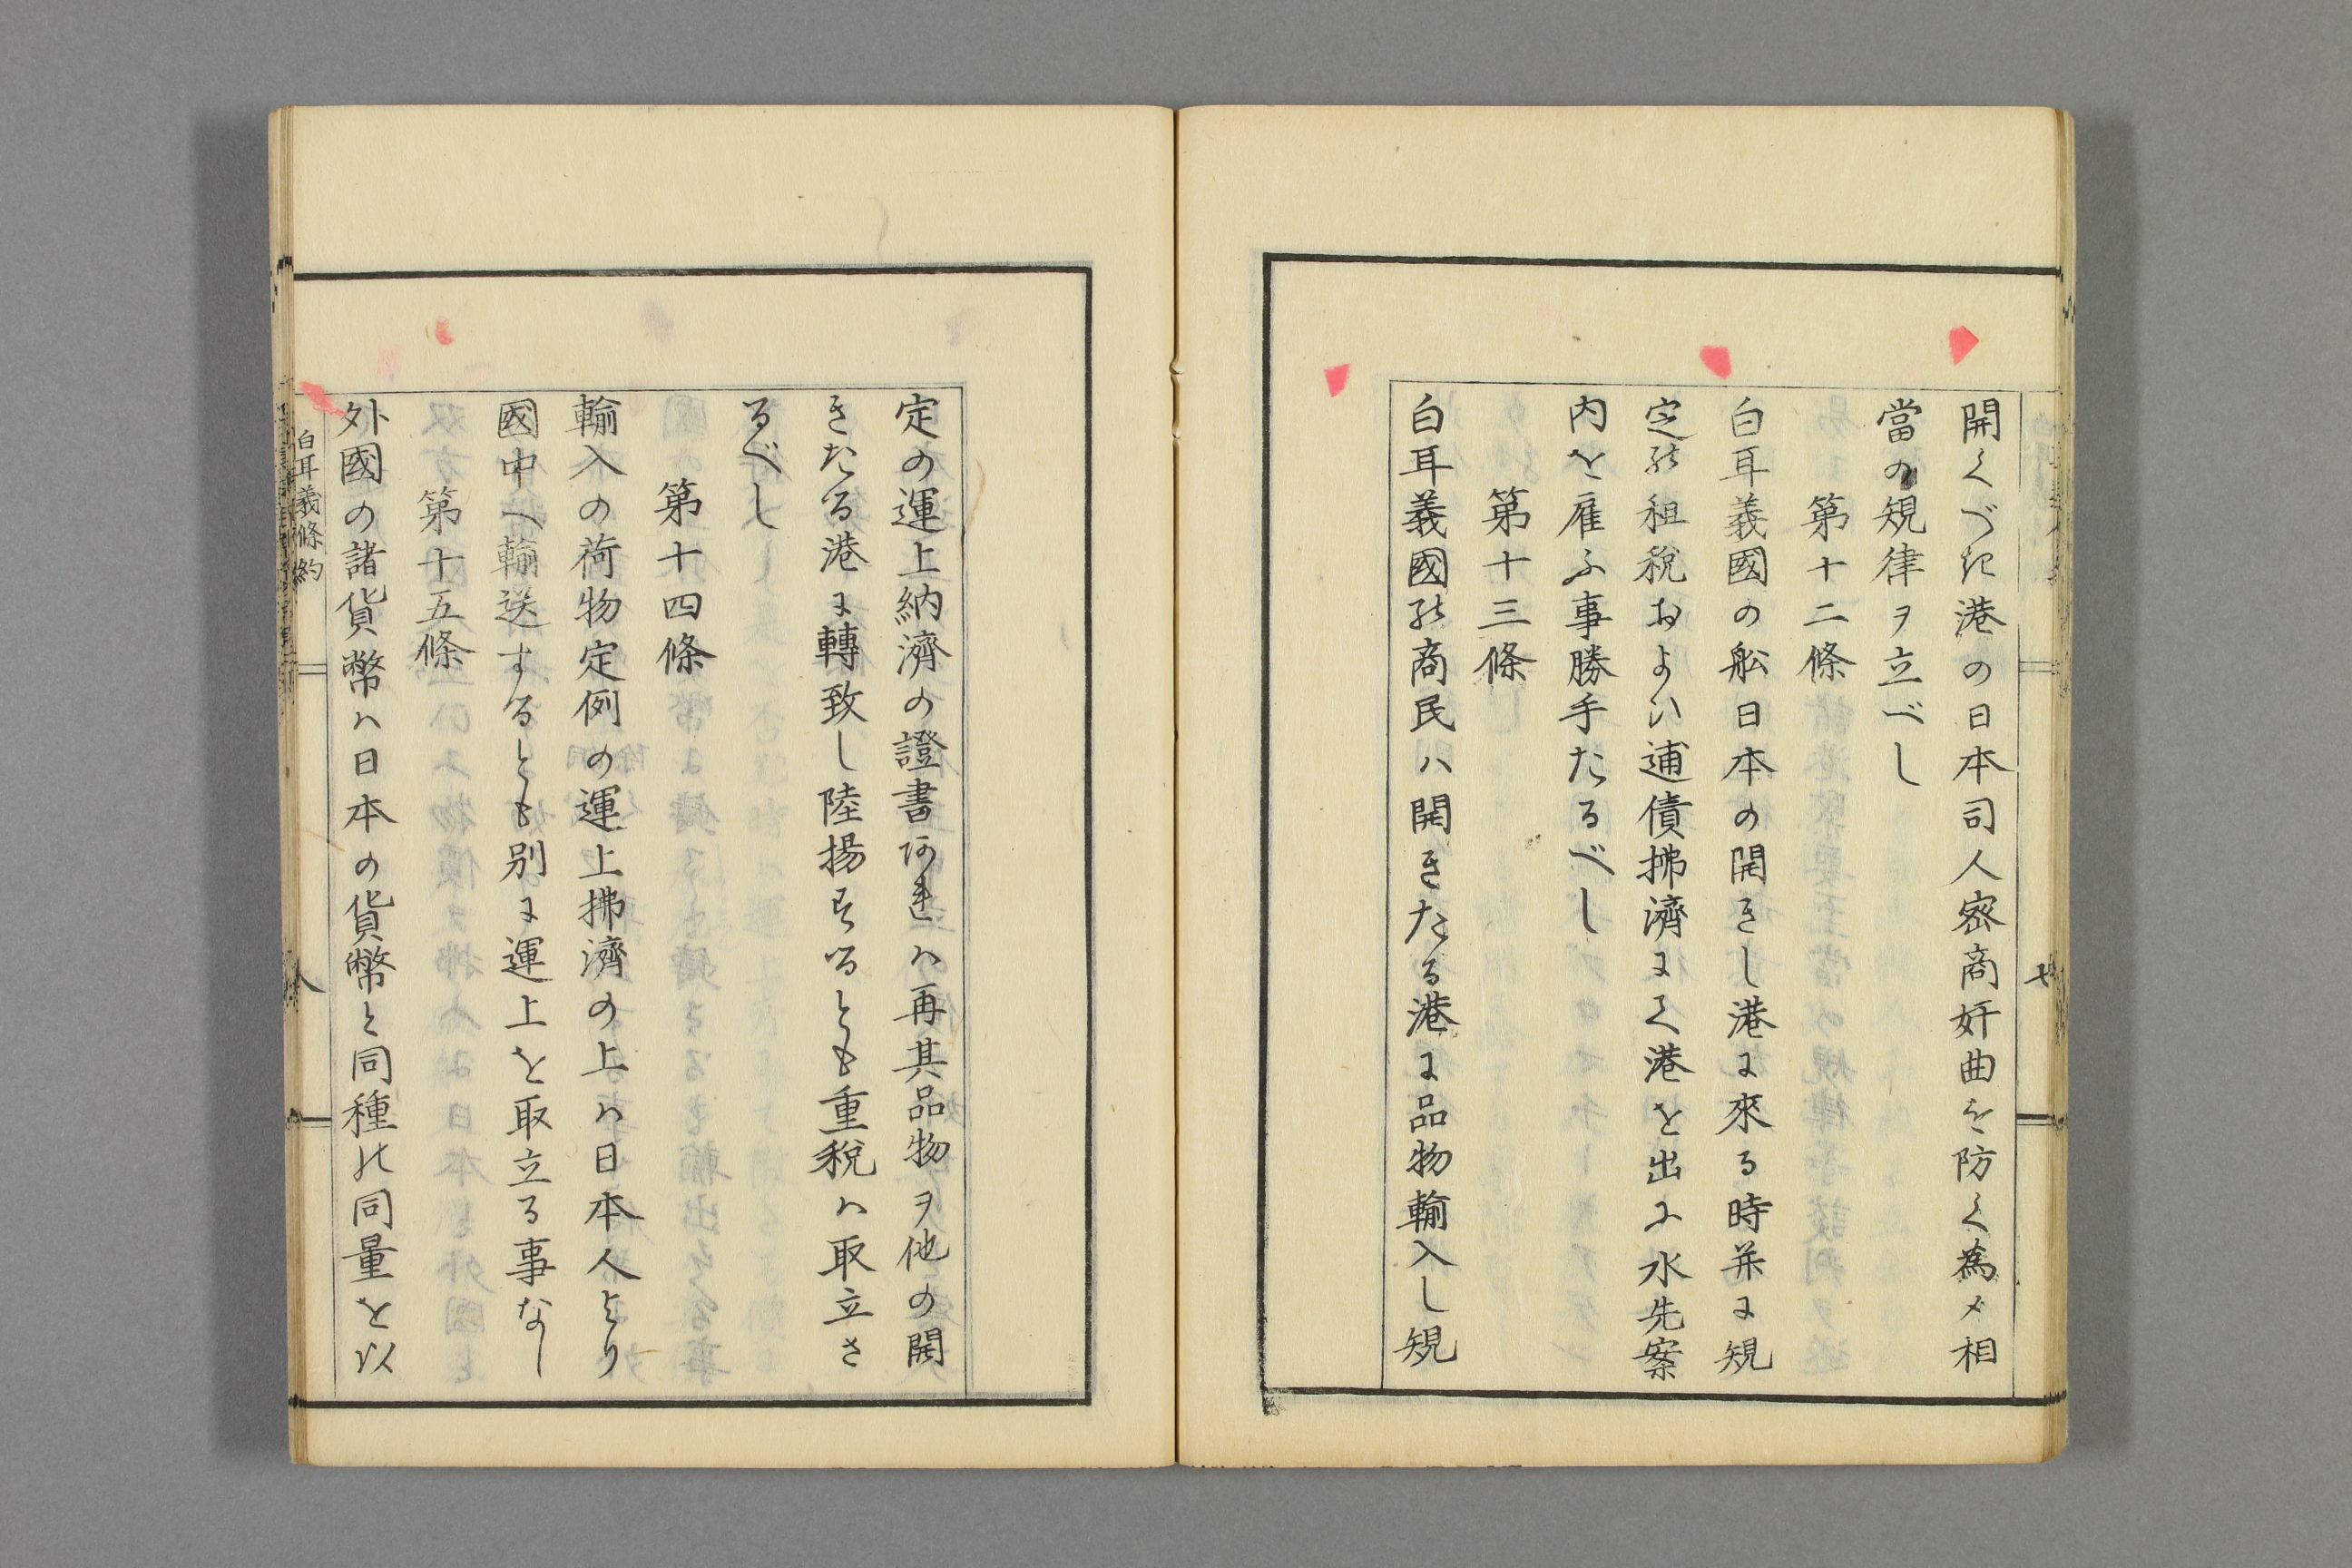 開くべき港の日本司人密商奸曲を防く為メ相
當の規律ヲ立べし
第十二條
白耳義國の舩日本の開きし港に來る時并に規
定の租税および逋債拂濟にて港を出に水先案
内を雇ふ事勝手たるべし
第十三條
白耳義國の商民ハ開きたる港に品物輸入し規
七
定の運上納濟の證書あれハ再其品物ヲ他の開
きたる港に轉致し陸揚するとも重税ハ取立さ
るべし
第十四條
輸入の荷物定例の運上拂濟の上ハ日本人より
國中へ輸送するとも別に運上を取立る事なし
第十五條
外國の諸貨幣ハ日本の貨幣と同種の同量を以
白耳義條約
八